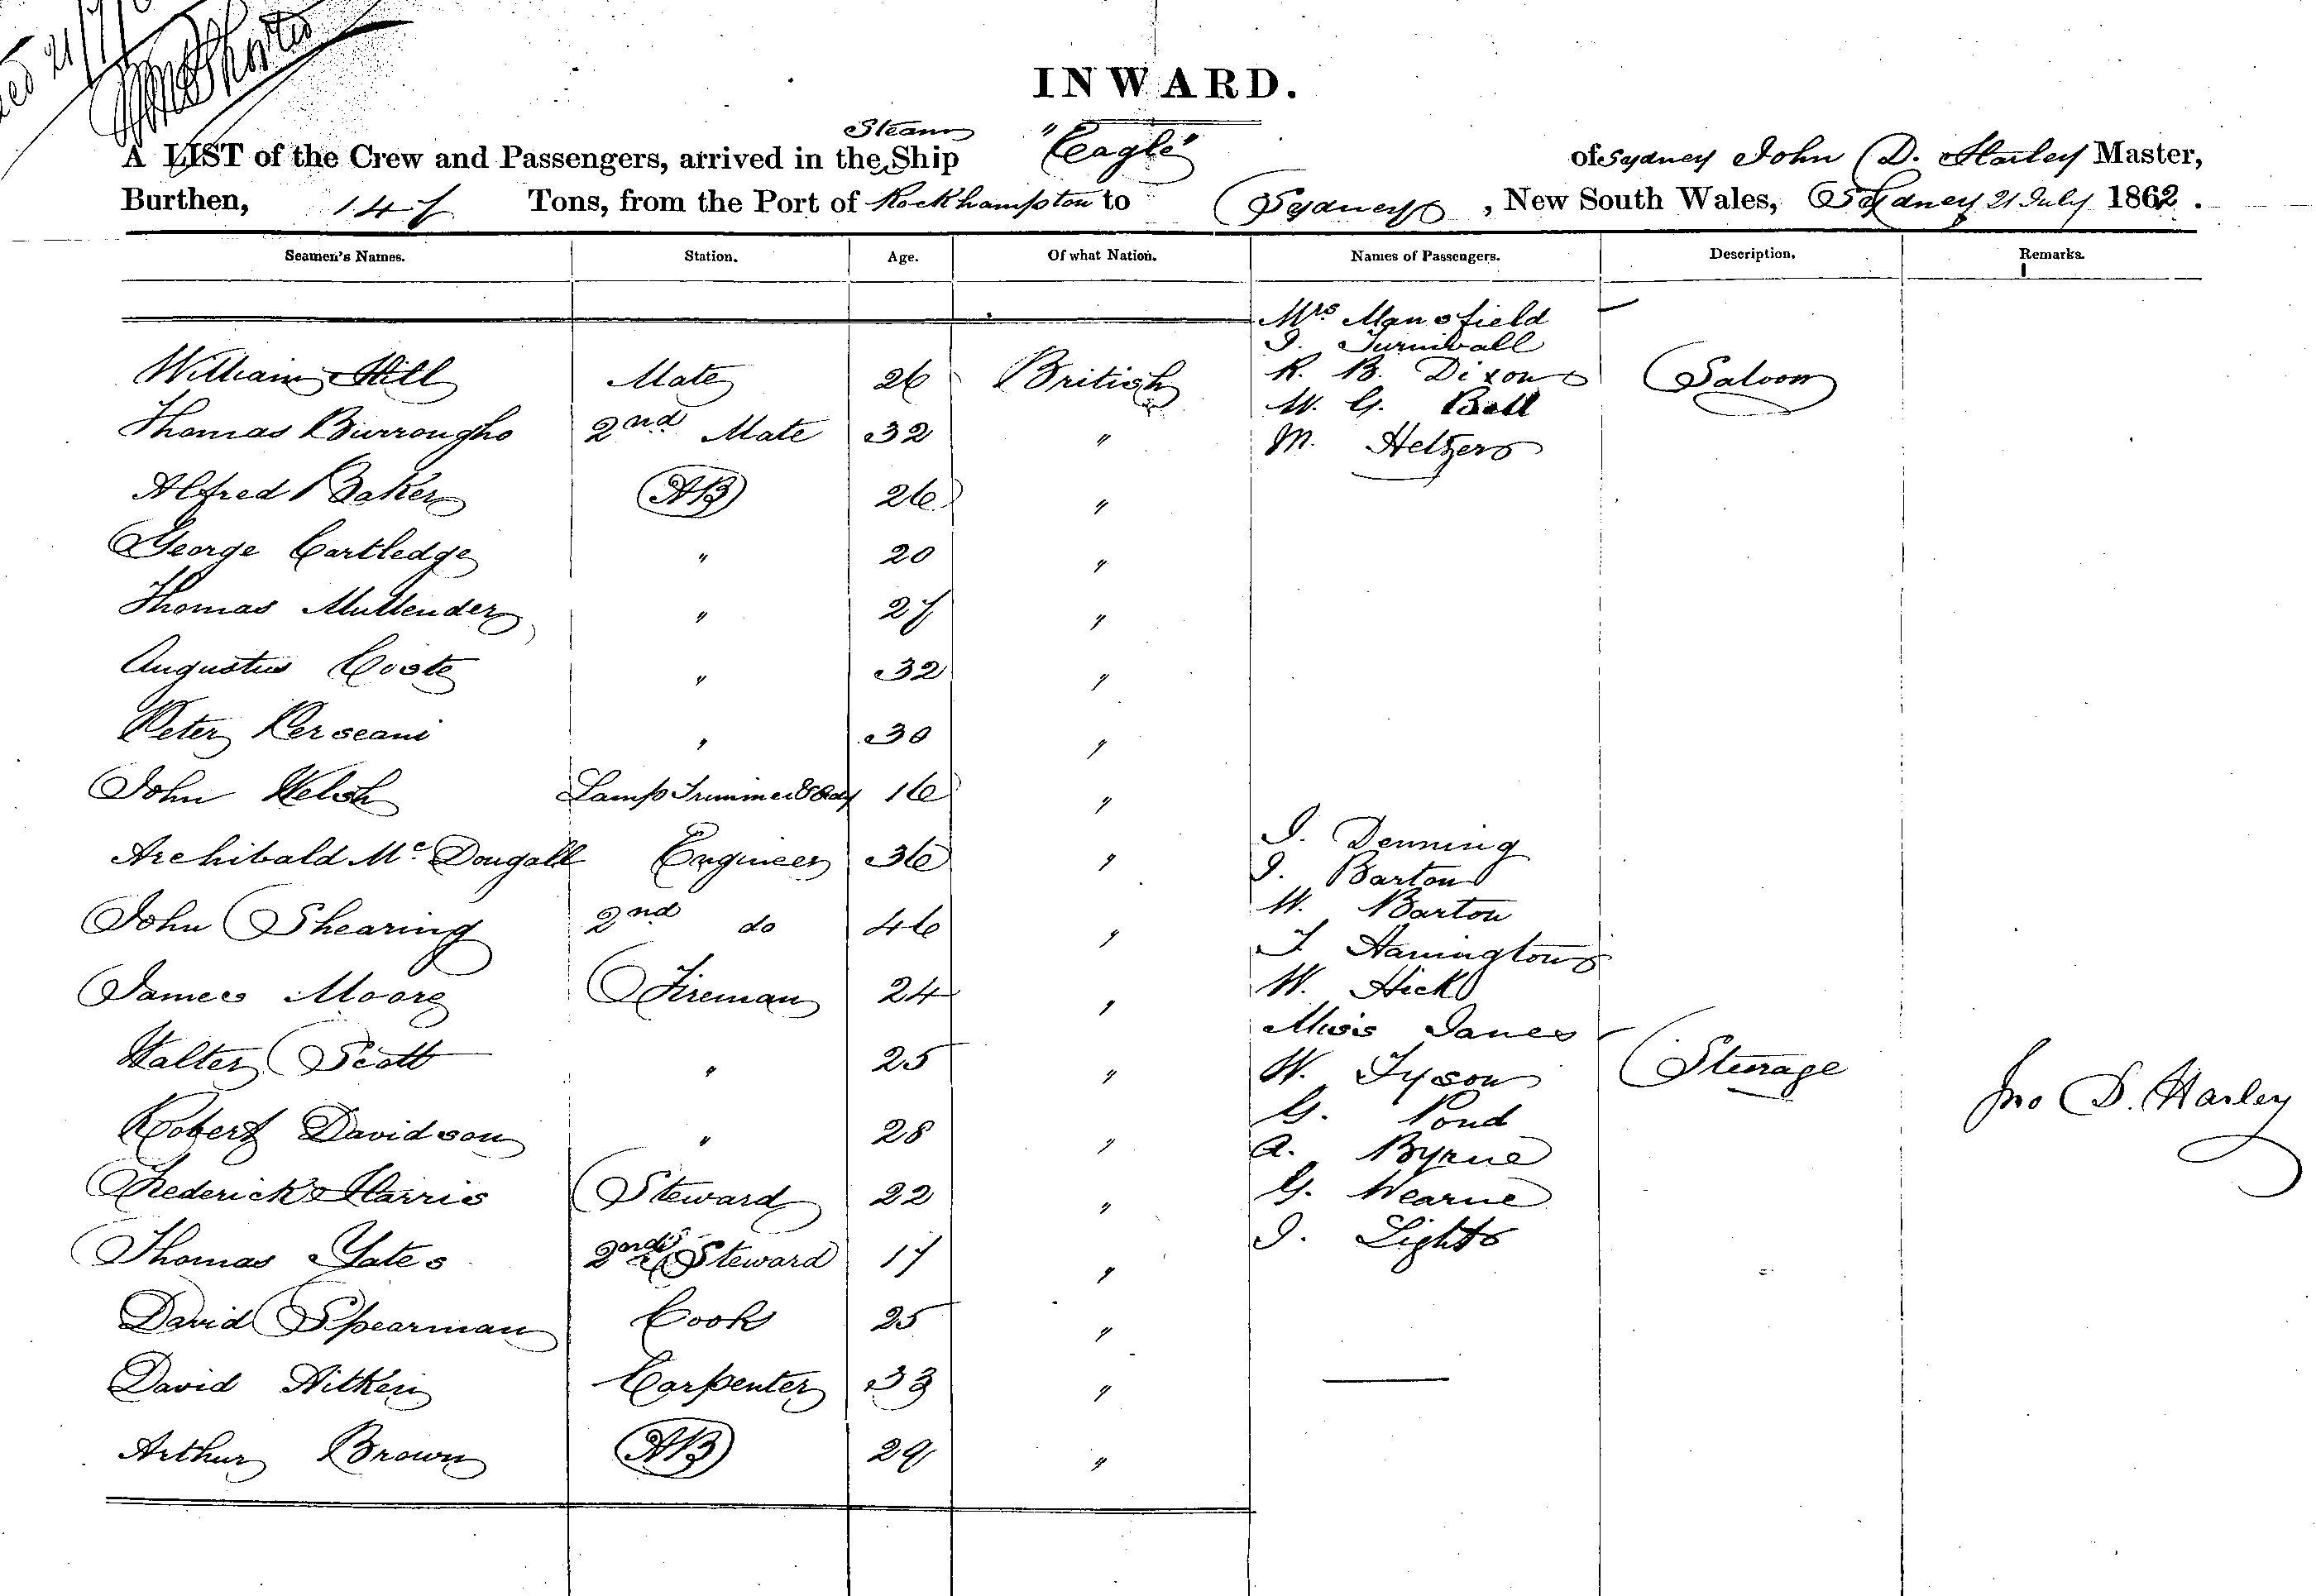 INWARD.
A LIST of the Crew and Passengers, arrived in the Steam Ship "Eagle" of Sydney John D. Harley Master,
Burthen, 147 Tons, from the Port of Rockhampton to Sydney, New South Wales, Sydney 21 July 1862.
Seamen's Names. Station. Age. Of what Nation. Names of Passengers. Description. Remarks.
Mrs Mansfield
J. Turnball
William Hill Mate 26 British R. B. Dixon Saloon
W. G. Ball
Thomas Burroughs 2nd Mate 32 " M. Hetzer
Alfred Baker AB 26 "
George Cartledge " 20 "
Thomas Mullender " 27 "
Augustus Coste " 32 "
Peter Perseani " 30 "
John Welsh Lamp Trimmer & Boy 16 "
J. Denning
Archibald Mc Dougall Engineer 36 "
J. Barton
W. Barton
John Shearing 2nd do 46 "
T Harrington
James Moore Fireman 24 " W. Hick
Miss Janes
Walter Scott " 25 " W. Tyson Sterrage
G. Pond
Jno D. Harley
Robert Davidson " 28 " A. Byrne
Frederick Harris Steward 22 " G. Wearne
J. Light
Thomas Yates 2nd Steward 17 "
David Spearman Cook 25 "
David Aitken Carpenter 33 "
Arthur Brown AB 29 "